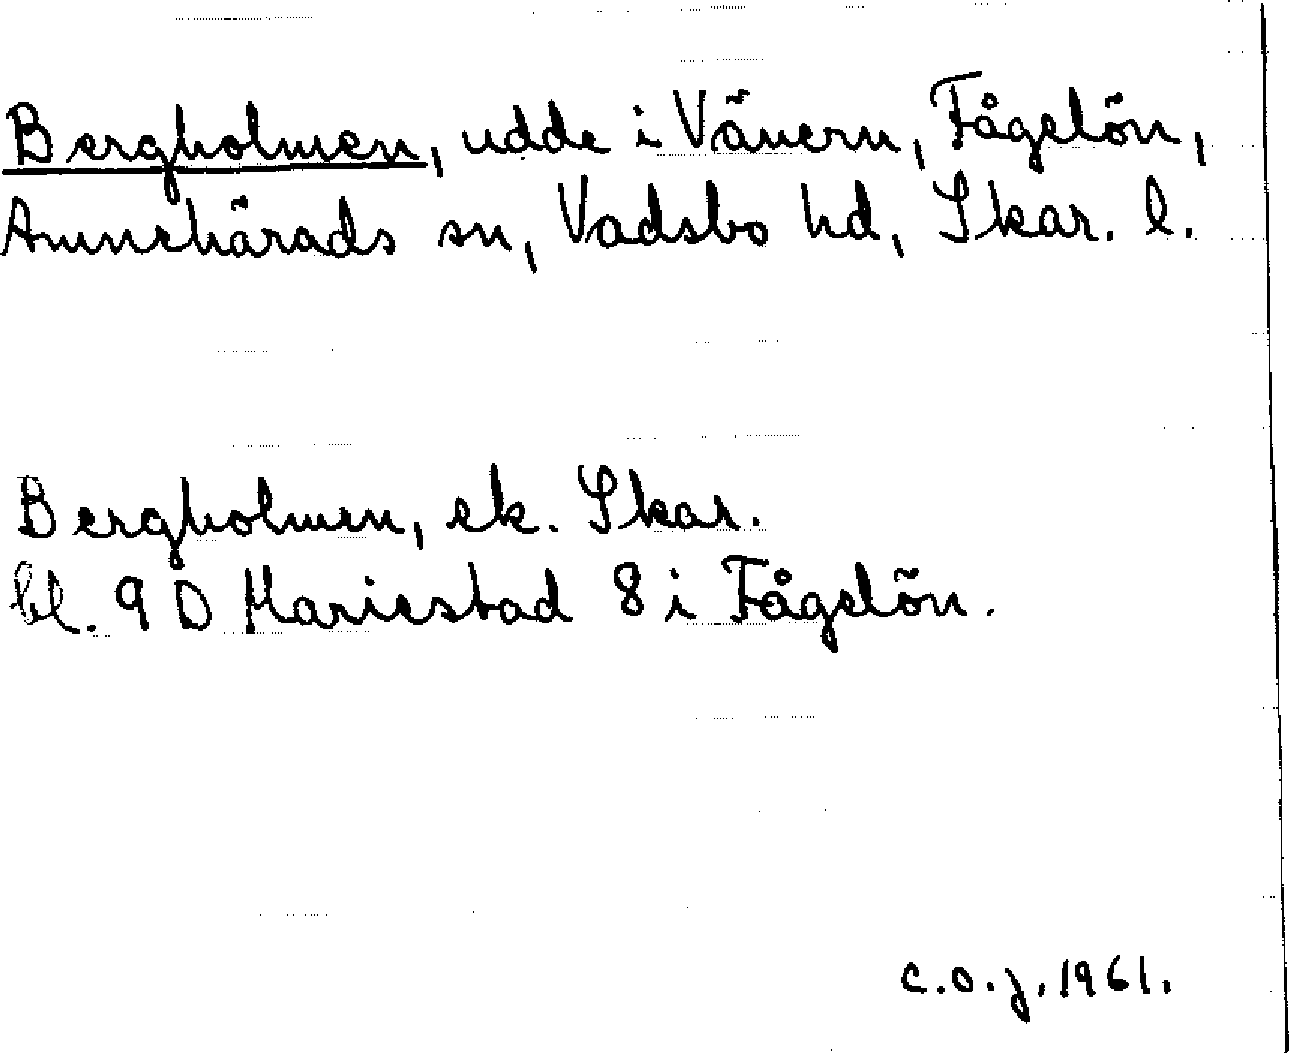 Bergholmen, udde i Vänern, Fågelön,
Amnehärads sn, Vadsbo hd, Skar. l.
Bergholmen, ek. Skar.
bl. 9 D Mariestad 8 i Fågelön.
C.O.J. 1961.